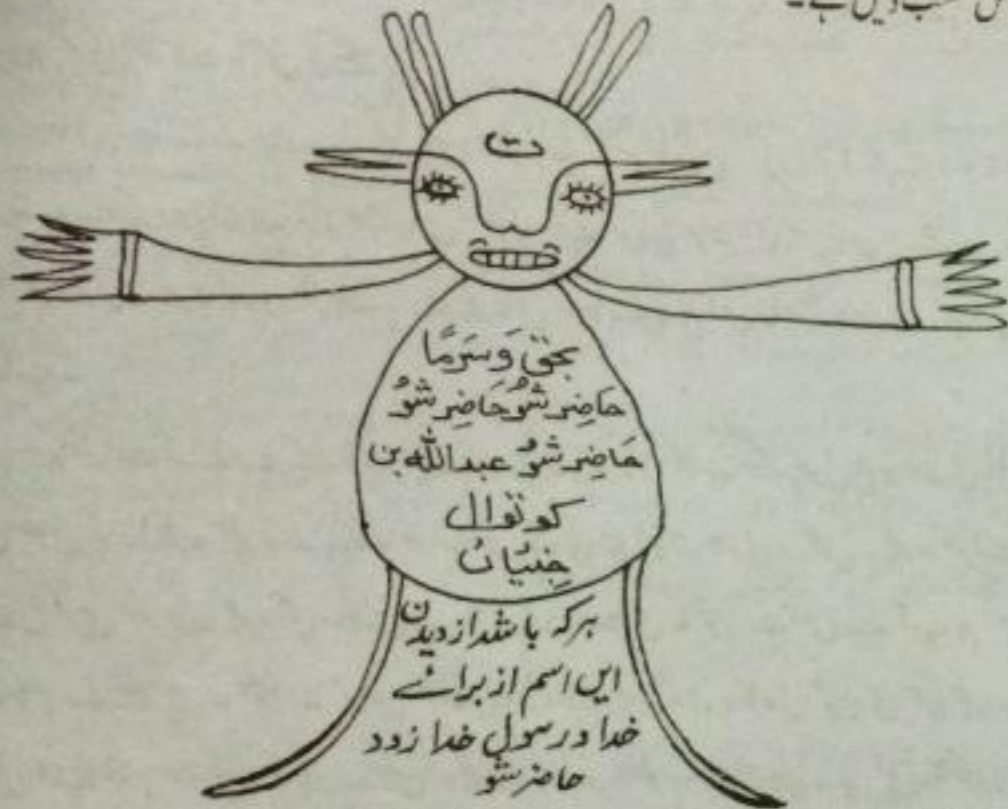 نہیں ہے۔
ت
بحق وَسَرمًا
حَاضِر شَوُ حَاضِر شَوُ
حَاضِر شَوُ عبدالله بن
کوتوال
جِنّیَان
ہرکہ باشد از دیدن
این اسم از برائے
خدا و رسول خدا زود
حاضر شو